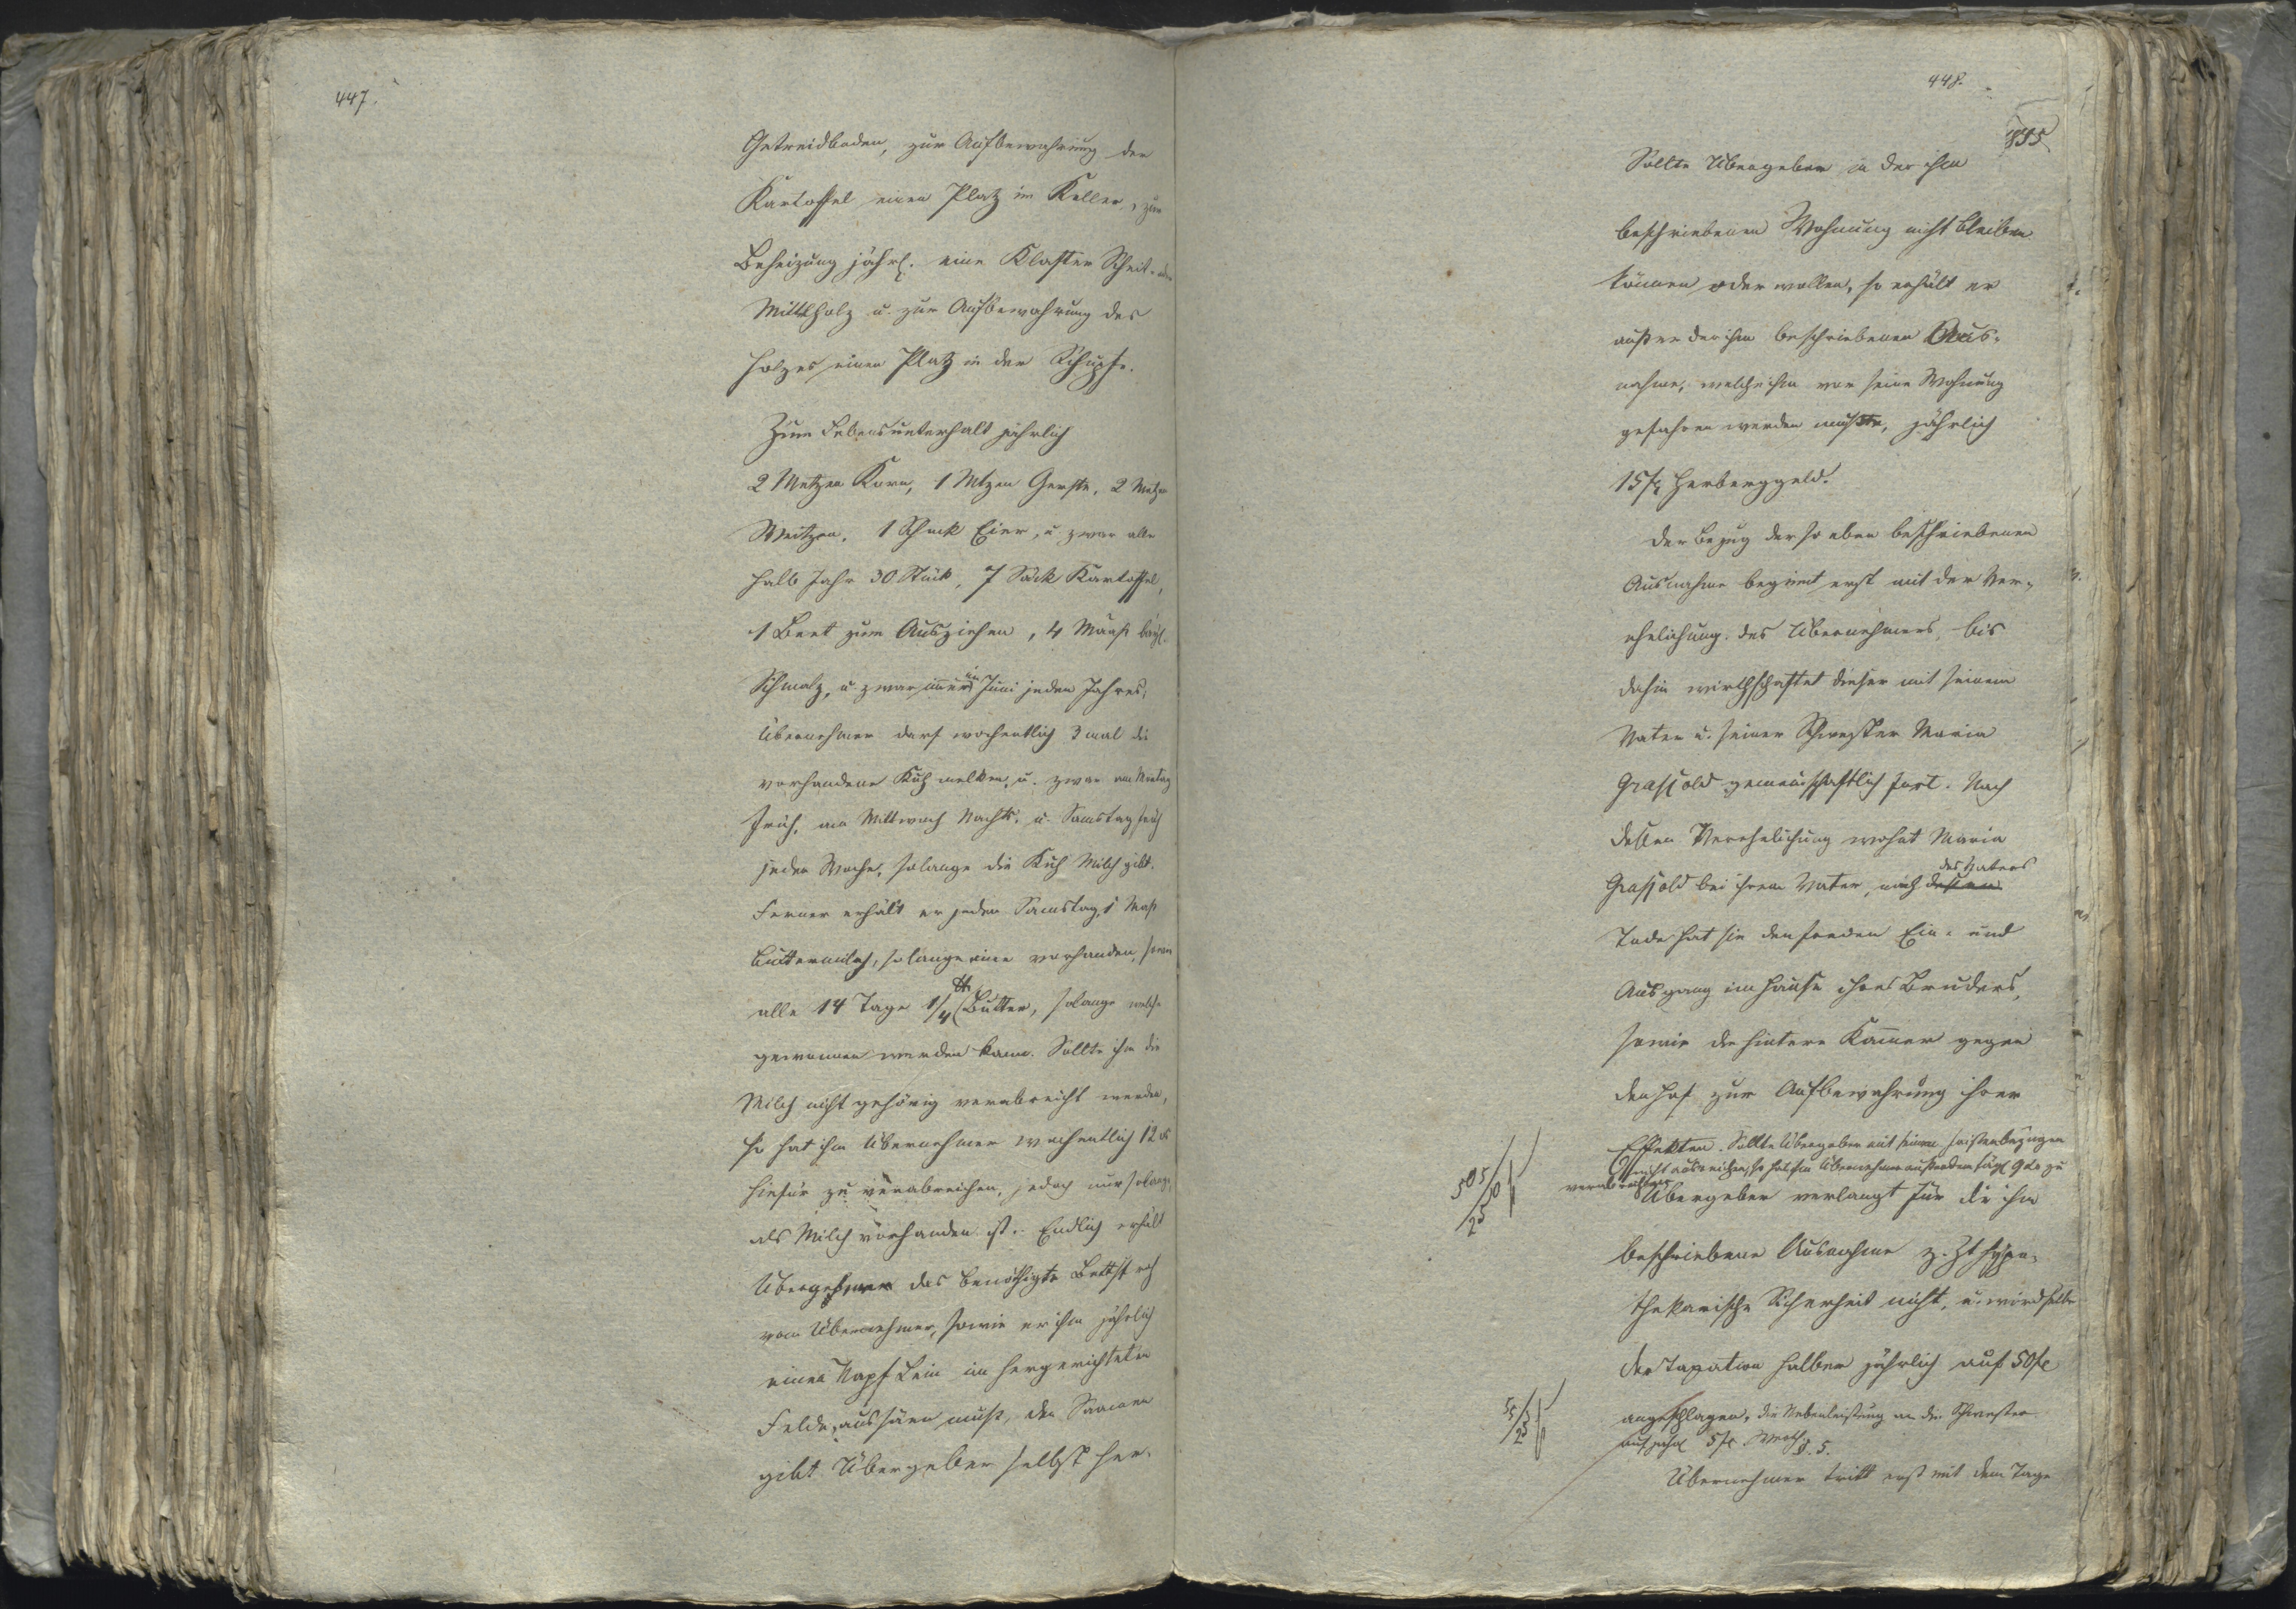 447.
Getreidboden, zur Aufbewahrung der
Kartoffel einen Platz im Keller, zur
Beheizung jährl. eine Klafter Scheit- oder
Mittelholz u. zur Aufbewahrung des
Holzes einen Platz in der Schupfe.
Zum Lebensunterhalt jährlich
2 Metzen Korn, 1 Mtzen Gerste, 2 Metzen
Weitzen, 1 Schock Eier, u. zwar alle
halb Jahr 30 Stück, 7 Säck Kartoffel,
1 Beet zum Ausziehen, 4 Maaß
Schmalz, u. zwar immer im Juni jeden Jahres,
Übernehmer darf wochentlich 3 mal die
vorhandene Kuh melken, u. zwar am Montag
Früh, am Mittwoch Nachts, u. Samstag früh
jeder Woche, solange die Kuh Milch gibt.
Ferner erhält er jeden Samstag 1 Maß
Buttermilch, solange eine vorhanden, ferner
alle 14 Tage 1/4 ℔ Butter, solange welche
gewonnen werden kann. Sollte ihm die
Milch nicht gehörig verabreicht werden,
so hat ihm Übernehmer wochentlich 12 x
hiefür zu verabreichen, jedoch nur solange,
als Milch vorhanden ist. Endlich erhält
Übergeber das benöthigte Bettstroh
vom Übernehmer, sowie er ihm jährlich
einen Napf Lein im hergerichteten
Felde aussäen muß, den Saamen
gibt Übergeber selbst her.
448.
835
Sollte Übergeber in der ihm
beschriebenen Wohnung nicht bleiben
können oder wollen, so erhält er
außer der ihm beschriebenen Aus-
nahme, welche ihm vor seine Wohnung
gefahren werden müßte, jährlich
15 fl Herberggeld.
Der Bezug der so eben beschriebenen
Ausnahme beginnt erst mit der Ver-
ehelichung des Übernehmers, bis
dahin wirthschaftet dieser mit seinem
Vater u. seiner Schwester Maria
Graßold gemeinschaftlich fort. Nach
dessen Verehelichung wohnt Maria
des Vaters
Graßold bei ihrem Vater, nach dessen
Tode hat sie den freien Ein- und
Ausgang im Hause ihres Bruders,
sowie die hintere Kammer gegen
den Hof zur Aufbewahrung ihrer
Effekten. Sollte Übergeber mit seinen
nicht ausreichen, so hat ihm Übernehmer außerdem tägl 9 zu
verabreichen
505/50
25
Übergeber verlangt für die ihm
beschriebene Ausnahme z. Zt hypo-
thekarische Sicherheit nicht, u. wird selbe
der Taxation halber jährlich auf 50 fl
angeschlagen, die Nebenleistung an die Schwester
auf jährl 5 fl. Werth
55/25
§. 5.
Übernehmer tritt erst mit dem Tage